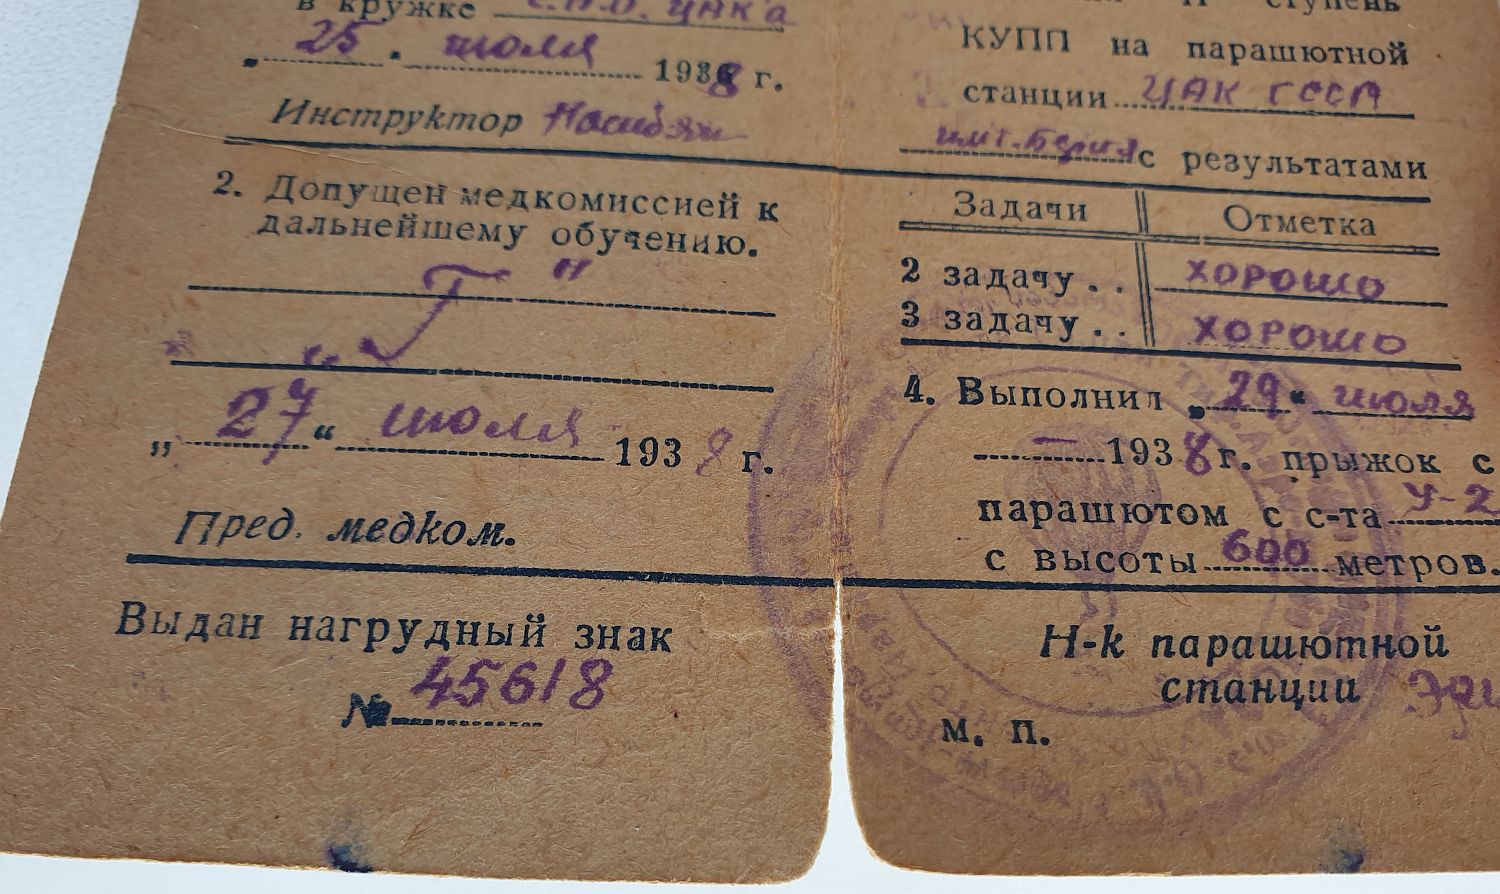 в кружке С.П.О. ЦАКа
„25“ июля 1938 г.
Инструктор
2. Допущен медкомиссией к
дальнейшему обучению.
„Г"
„27“ июля 1938 г.
Пред. медком.
Выдан нагрудный знак
№ 45618
ступень
КУПП на парашютной
станции ЦАК ГССР
им т. Берия с результатами
Задачи Отметка
2 задачу . . хорошо
3 задачу . . хорошо
4. Выполнил „29“ июля
— 1938 г. прыжок с
парашютом с с-та У-2
с высоты 600 метров.
Н-к парашютной
станции
М. П.